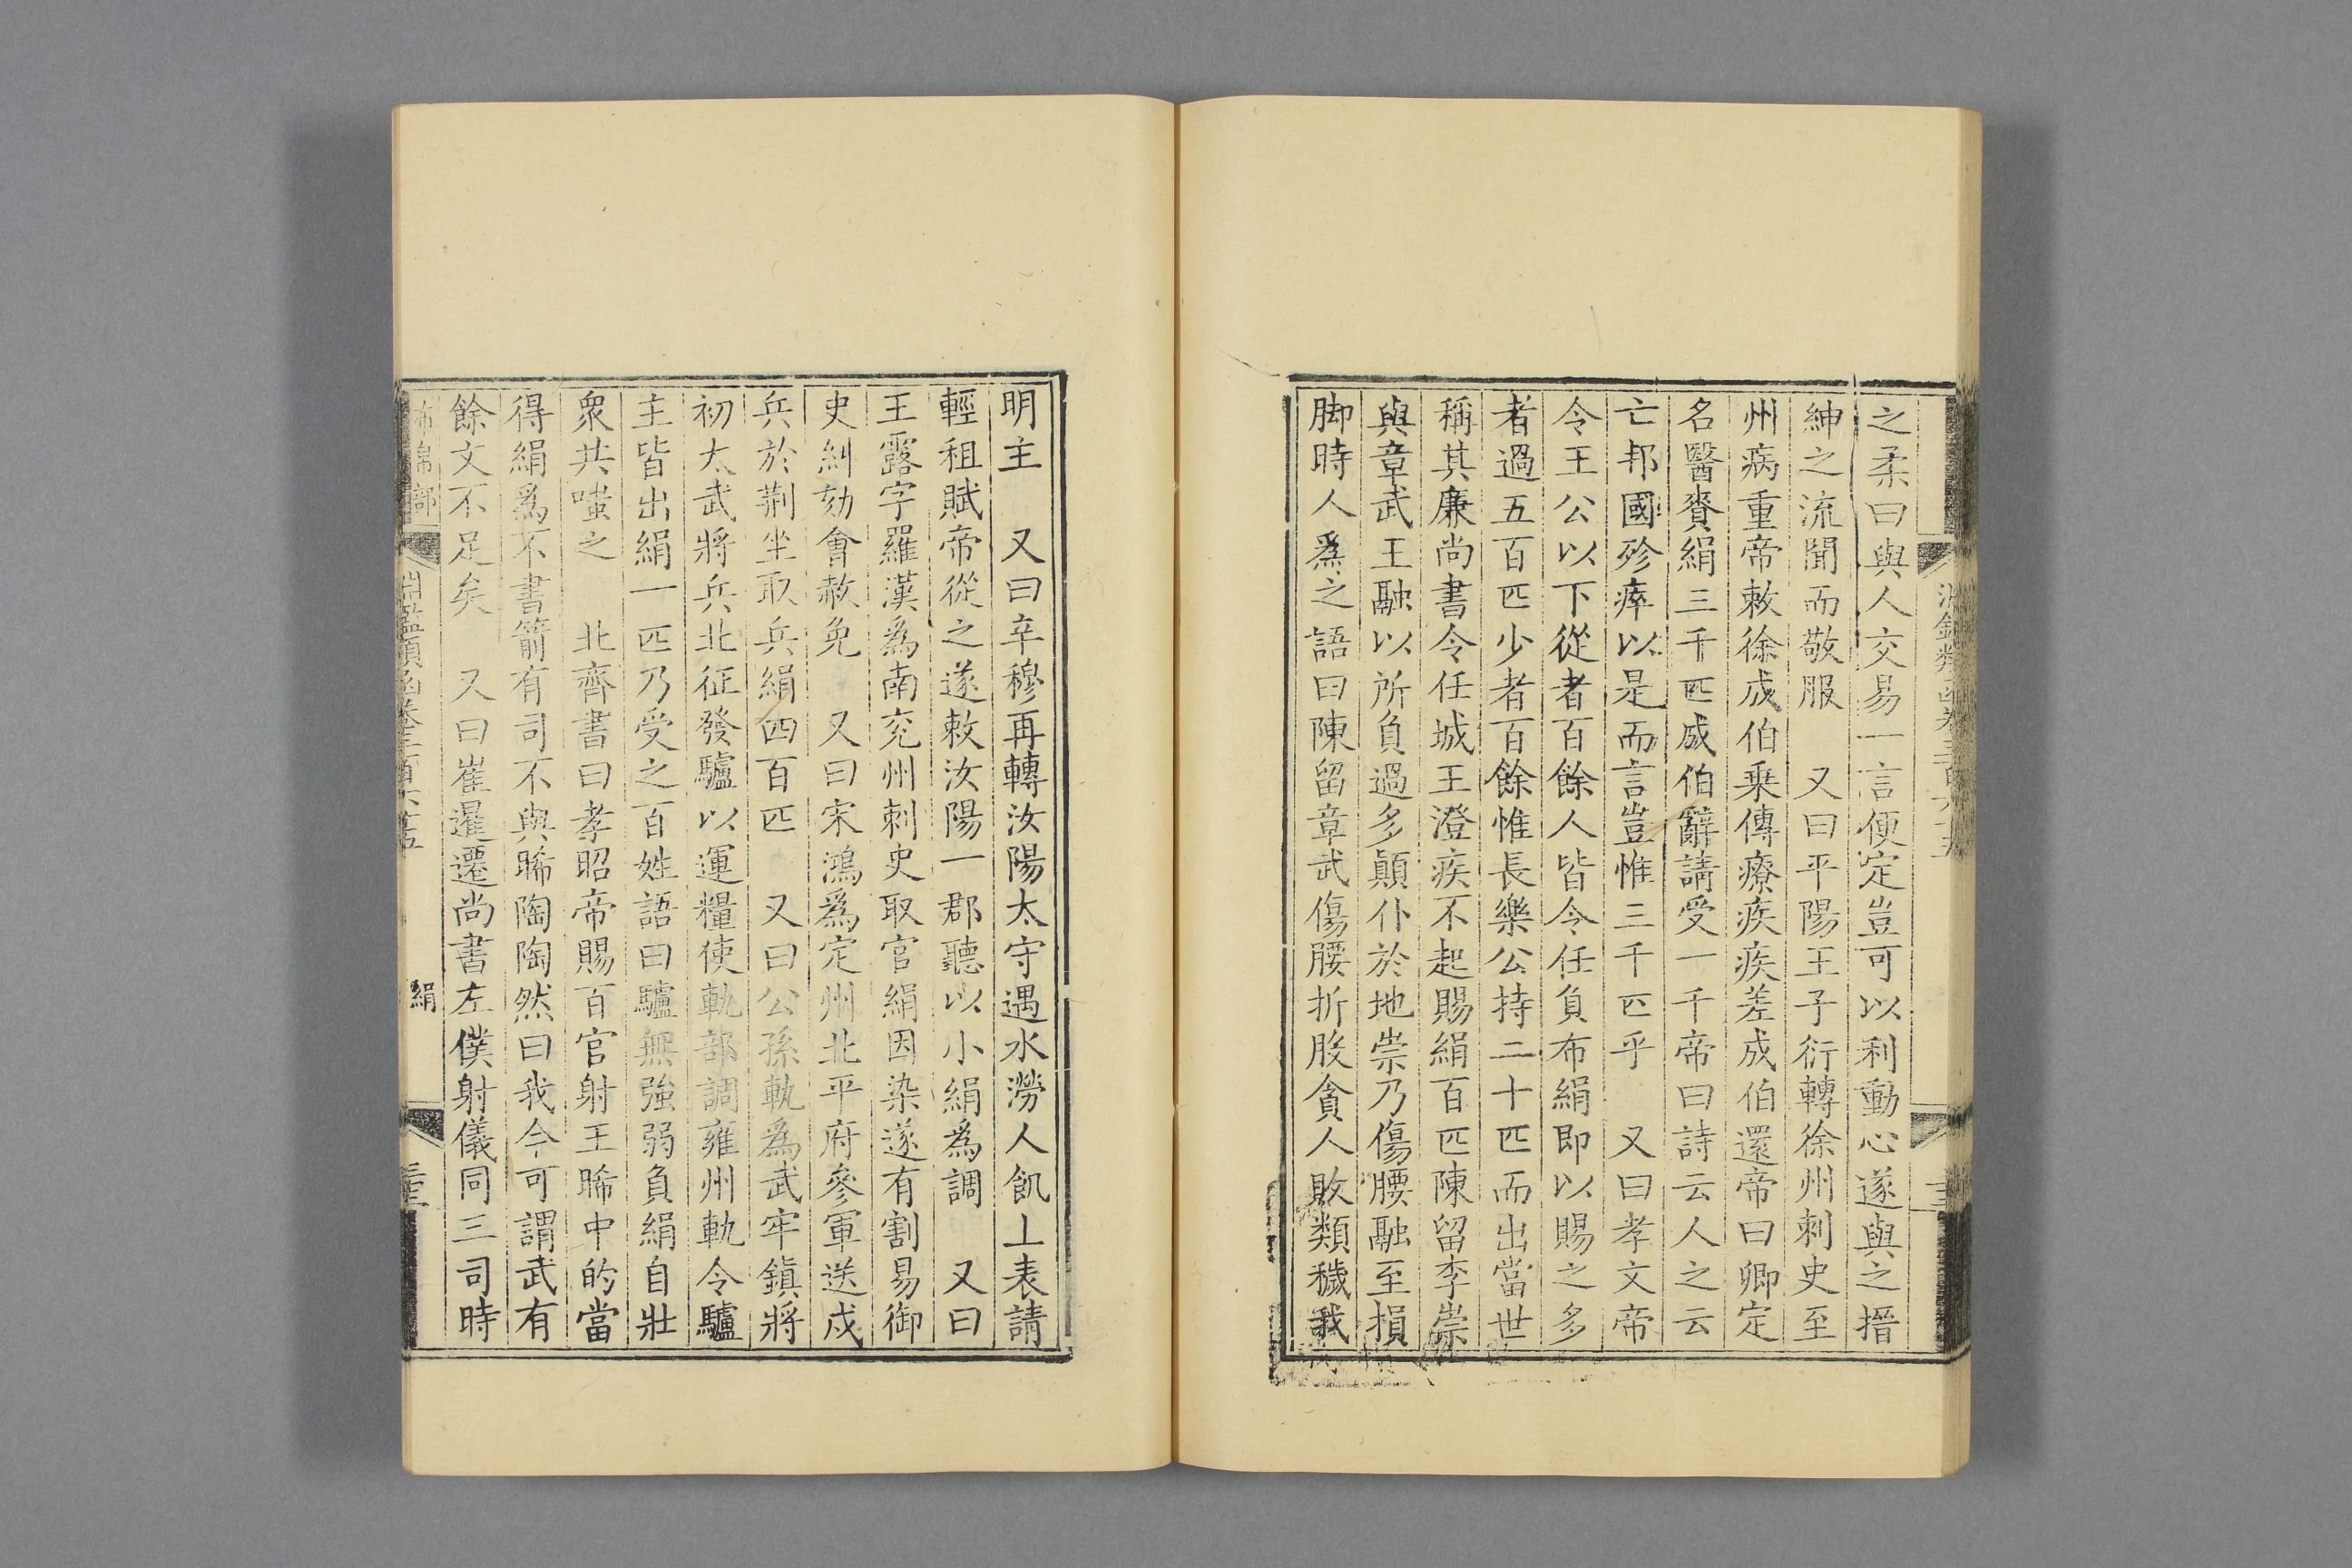 之柔曰與人交易一言便定豈可以利動心遂與之搢
紳之流聞而敬服　又曰平陽王子衍轉徐州刺史至
州病重帝敕徐成伯乗傳療疾疾差成伯還帝曰卿定
名醫賚絹三千匹成伯辭請受一千帝曰詩云人之云
亡邦國殄瘁以是而言豈惟三千匹乎　又曰孝文帝
令王公以下從者百餘人皆令任負布絹即以賜之多
者過五百匹少者百餘惟長樂公持二十匹而出當世
稱其廉尚書令任城王澄疾不起賜絹百匹陳留李崇
與章武王融以所負過多顛仆於地崇乃傷腰融至損
脚時人爲之語曰陳留章武傷腰折股貪人敗類穢我
明主　又曰辛穆再轉汝陽太守遇水澇人飢上表請
輕租賦帝從之遂敕汝陽一郡聽以小絹爲調　又曰
王露字羅漢爲南兖州刺史取官絹因染遂有割易御
史糾劾會赦免　又曰宋鴻爲定州北平府參軍送戍
兵於荆坐取兵絹四百匹　又曰公孫軌爲武牢鎭將
初太武將兵北征發驢以運糧使軌部調雍州軌令驢
主皆出絹一匹乃受之百姓語曰驢無強弱負絹自壯
衆共嗤之　北齊書曰孝昭帝賜百官射王晞中的當
得絹爲不書箭有司不與晞陶陶然曰我今可謂武有
餘文不足矣　又曰崔暹遷尚書左僕射儀同三司時
布帛部
淵鑑類函卷三百六十五
絹